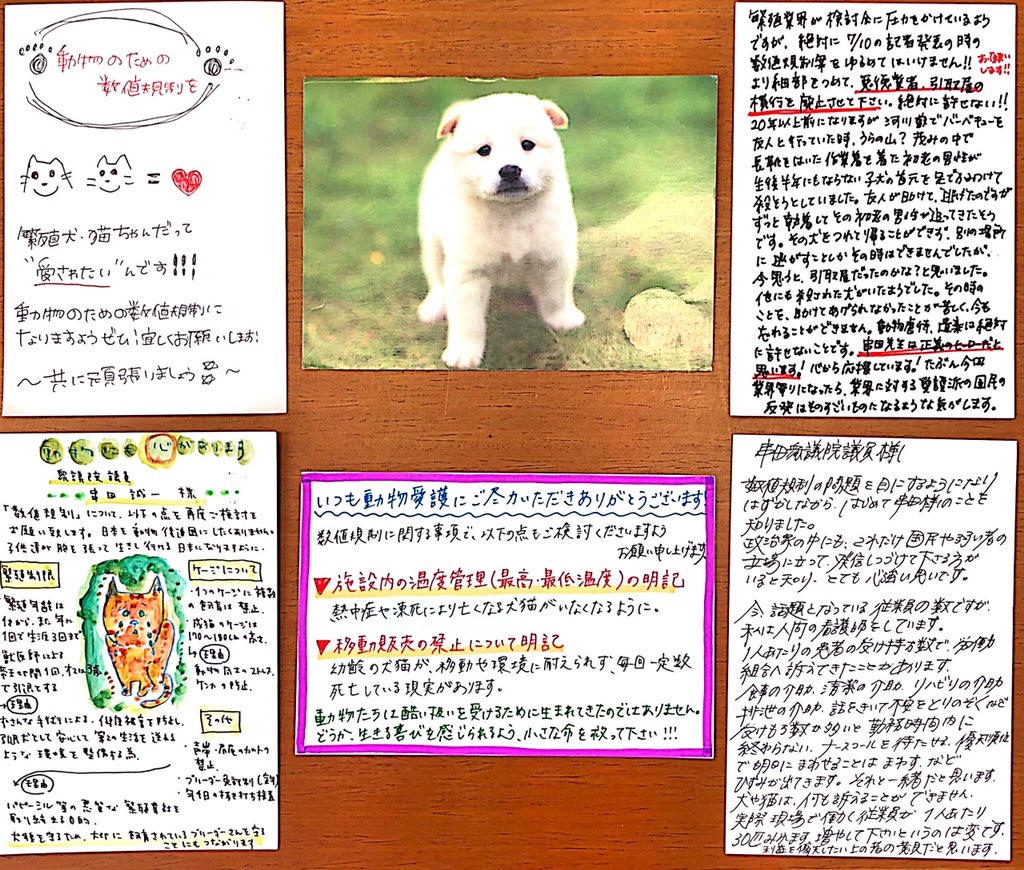 動物のための
数値規制を
=
繁殖犬・猫ちゃんだって
“愛されたい”んです!!!
動物のための数値規制に
なりますようぜひ宜しくお願いします!
〜共に頑張りましょう〜
繁殖業界が検討会に圧力をかけているよう
ですが、絶対に7/10の記者発表の時の
数値規制案をゆるめてはいけません!!
お願い
します!!
より細部をつめて、悪徳業者、引取屋の
横行を廃止させて下さい。絶対に許せない!!
20年以上前になりますが河川敷でバーベキューを
友人と行っていた時、うらの山?茂みの中で
長靴をはいた作業着を着た初老の男性が
生後半年にもならない子犬の首元を足でふみつけて
殺そうとしていました。友人が助けて、逃げたのですが
ずっと執着してその初老の男性が追ってきたそう
です。その犬をつれて帰ることができず、別の場所
に逃がすことしかその時はできませんでしたが、
今思うと、引取屋だったのかな?と思いました。
他にも殺された犬がいたようでした。その時の
ことを、助けてあげられなかったことが苦しく、今も
忘れることができません。動物虐待、遺棄は絶対
に許せないことです。串田先生は正義のヒーローだと
思います!心から応援しています!たぶん今回
業界寄りになったら、業界に対する愛護派の国民の
反発はものすごいものになるような気がします。
動物にも心があります
衆議院議員
串田 誠一 様
「数値規制」について、以下の点を再度ご検討を
お願い致します。日本を動物後進国にしたくありません。
子供達が胸を張って生きて行ける日本になりますように。
繁殖制限
ケージについて
1つのケージに複数
の飼育は禁止。
成猫のケージは
(理由)
繁殖年齢は
1回で生涯3回まで
獣医師による
で引退とする
(理由)
その他
禁止。
(理由)
パピーミル等の悪質な繁殖業者を
取り締まる目的。
犬猫を守るため、大切に飼育されているブリーダーさんを守る
ことにもつながります
いつも動物愛護にご尽力いただきありがとうございます!
数値規制に関する事項で、以下の点もご検討くださいますよう
お願い申し上げます
▼施設内の温度管理(最高・最低温度)の明記
熱中症や凍死により亡くなる犬猫がいなくなるように。
▼移動販売の禁止について明記
幼齢の犬猫が、移動や環境に耐えられず、毎回一定数
死亡している現実があります。
動物たちは酷い扱いを受けるために生まれてきたのではありません。
どうか、生きる喜びを感じられるよう、小さな命を救って下さい!!!
串田衆議院議員様
数値規制の問題を目にするようになり
はずかしながら、はじめて串田様のことを
知りました。
政治家の中にも、これだけ国民や弱い者の
立場に立って、発信しつづけて下さる方が
いると知り、とても心強い思いです。
今、話題となっている従業員の数ですが、
私は人間の看護師をしています。
1人あたりの患者の受け持ち数で、労働
組合へ訴えてきたことがあります。
食事の介助、清潔の介助、リハビリの介助
排泄の介助、話をきいて不安をとりのぞくなど
受けもつ数が多いと勤務時間内に
終わらない、ナースコールを待たせる、優先順位
で明日にまわせることはまわす、など
ひずみが出てきます。それと一緒だと思います。
犬や猫は、何も訴えることができません。
実際現場で働く従業員が1人あたり
30匹みれます、増やして下さいというのは変です。
利益を優先したい上の者の意見だと思います。